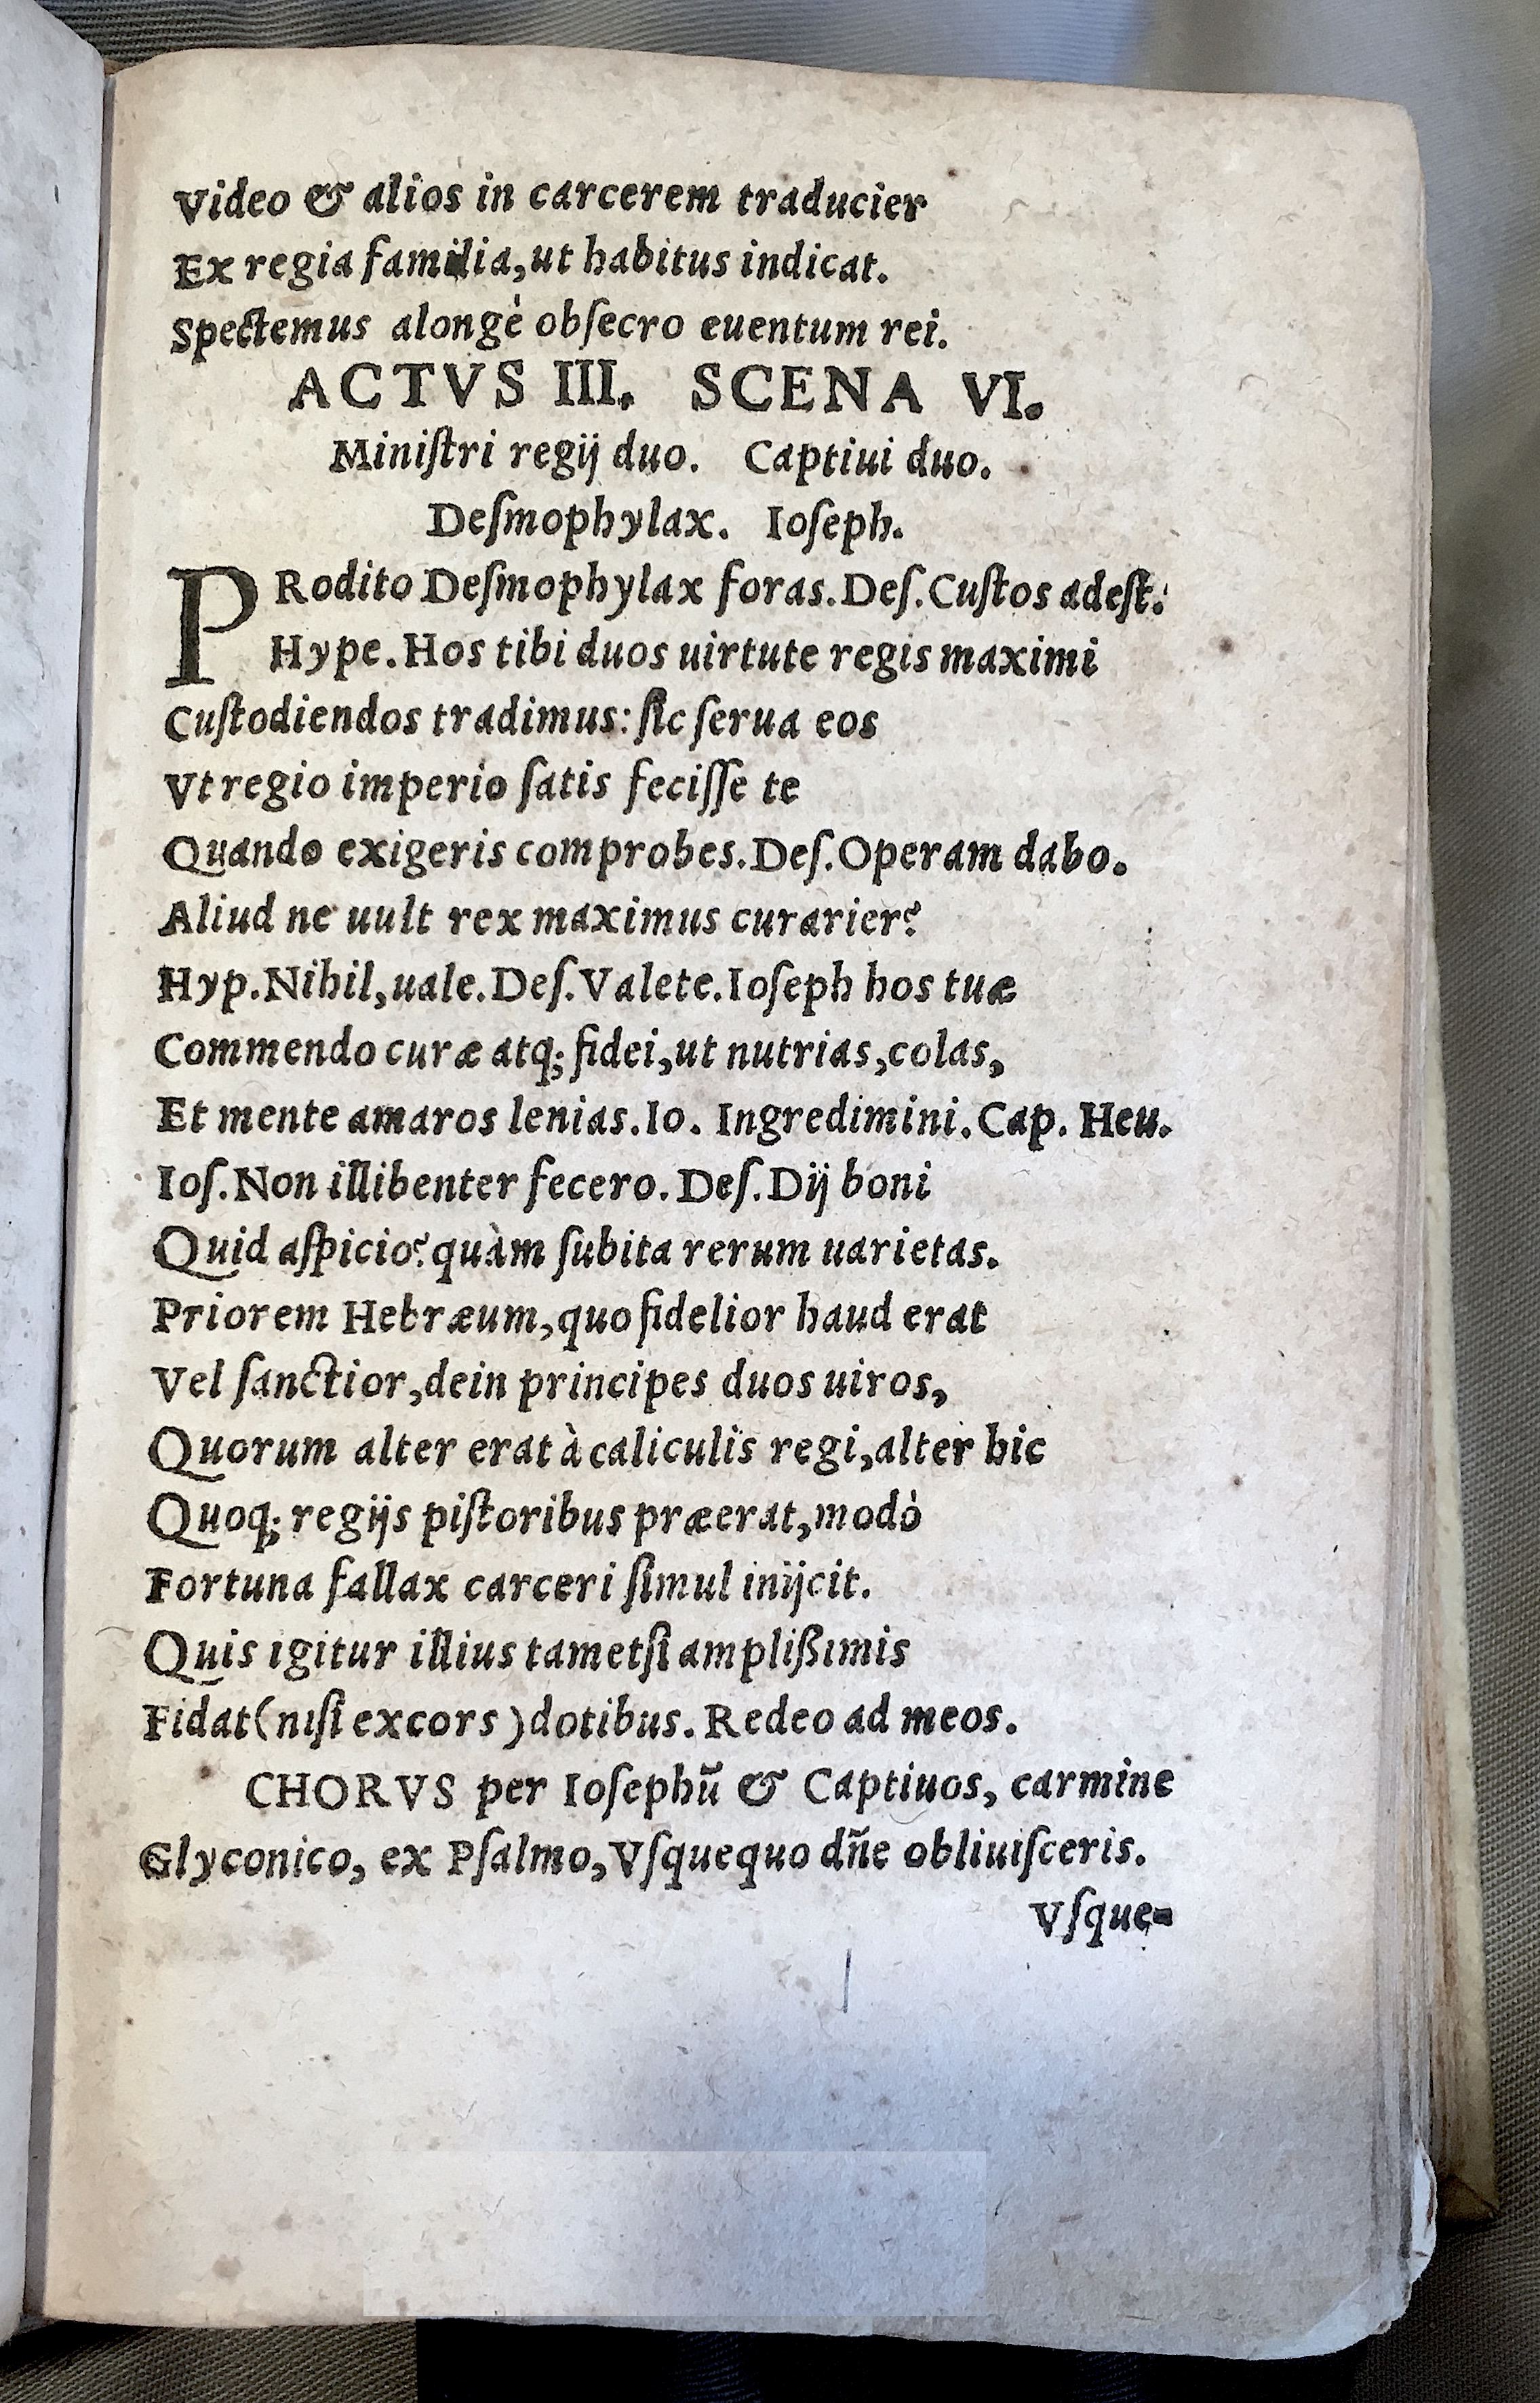 Video & alios in carcerem traducier
Ex regia familia, ut habitus indicat.
Spectemus alongè obſecro euentum rei.
ACTVS III. SCENA VI.
Miniſtri regij duo. Captiui duo.
Deſmophylax. Ioſeph.
PRodito Deſmophylax foras. Deſ. Cuſtos adeſt.
Hype. Hos tibi duos uirtute regis maximi
Cuſtodiendos tradimus: ſic ſerua eos
Vt regio imperio ſatis feciſſe te
Quando exigeris comprobes. Deſ. Operam dabo.
Aliud ne uult rex maximus curarier?
Hyp. Nihil, uale. Deſ. Valete. Ioſeph hos tuæ
Commendo curæ atq; fidei, ut nutrias, colas,
Et mente amaros lenias. Io. Ingredimini. Cap. Heu.
Ioſ. Non illibenter fecero. Deſ. Dij boni
Quid aſpicio? quàm ſubita rerum uarietas.
Priorem Hebræum, quo fidelior haud erat
Vel ſanctior, dein principes duos uiros,
Quorum alter erat à caliculis regi, alter hic
Quoq; regijs piſtoribus præerat, modò
Fortuna fallax carceri ſimul inijcit.
Quis igitur illius tametſi amplißimis
Fidat (niſi excors) dotibus. Redeo ad meos.
CHORVS per Ioſephū & Captiuos, carmine
Glyconico, ex Pſalmo, Vſquequo dñe obliuiſceris.
Vſque=